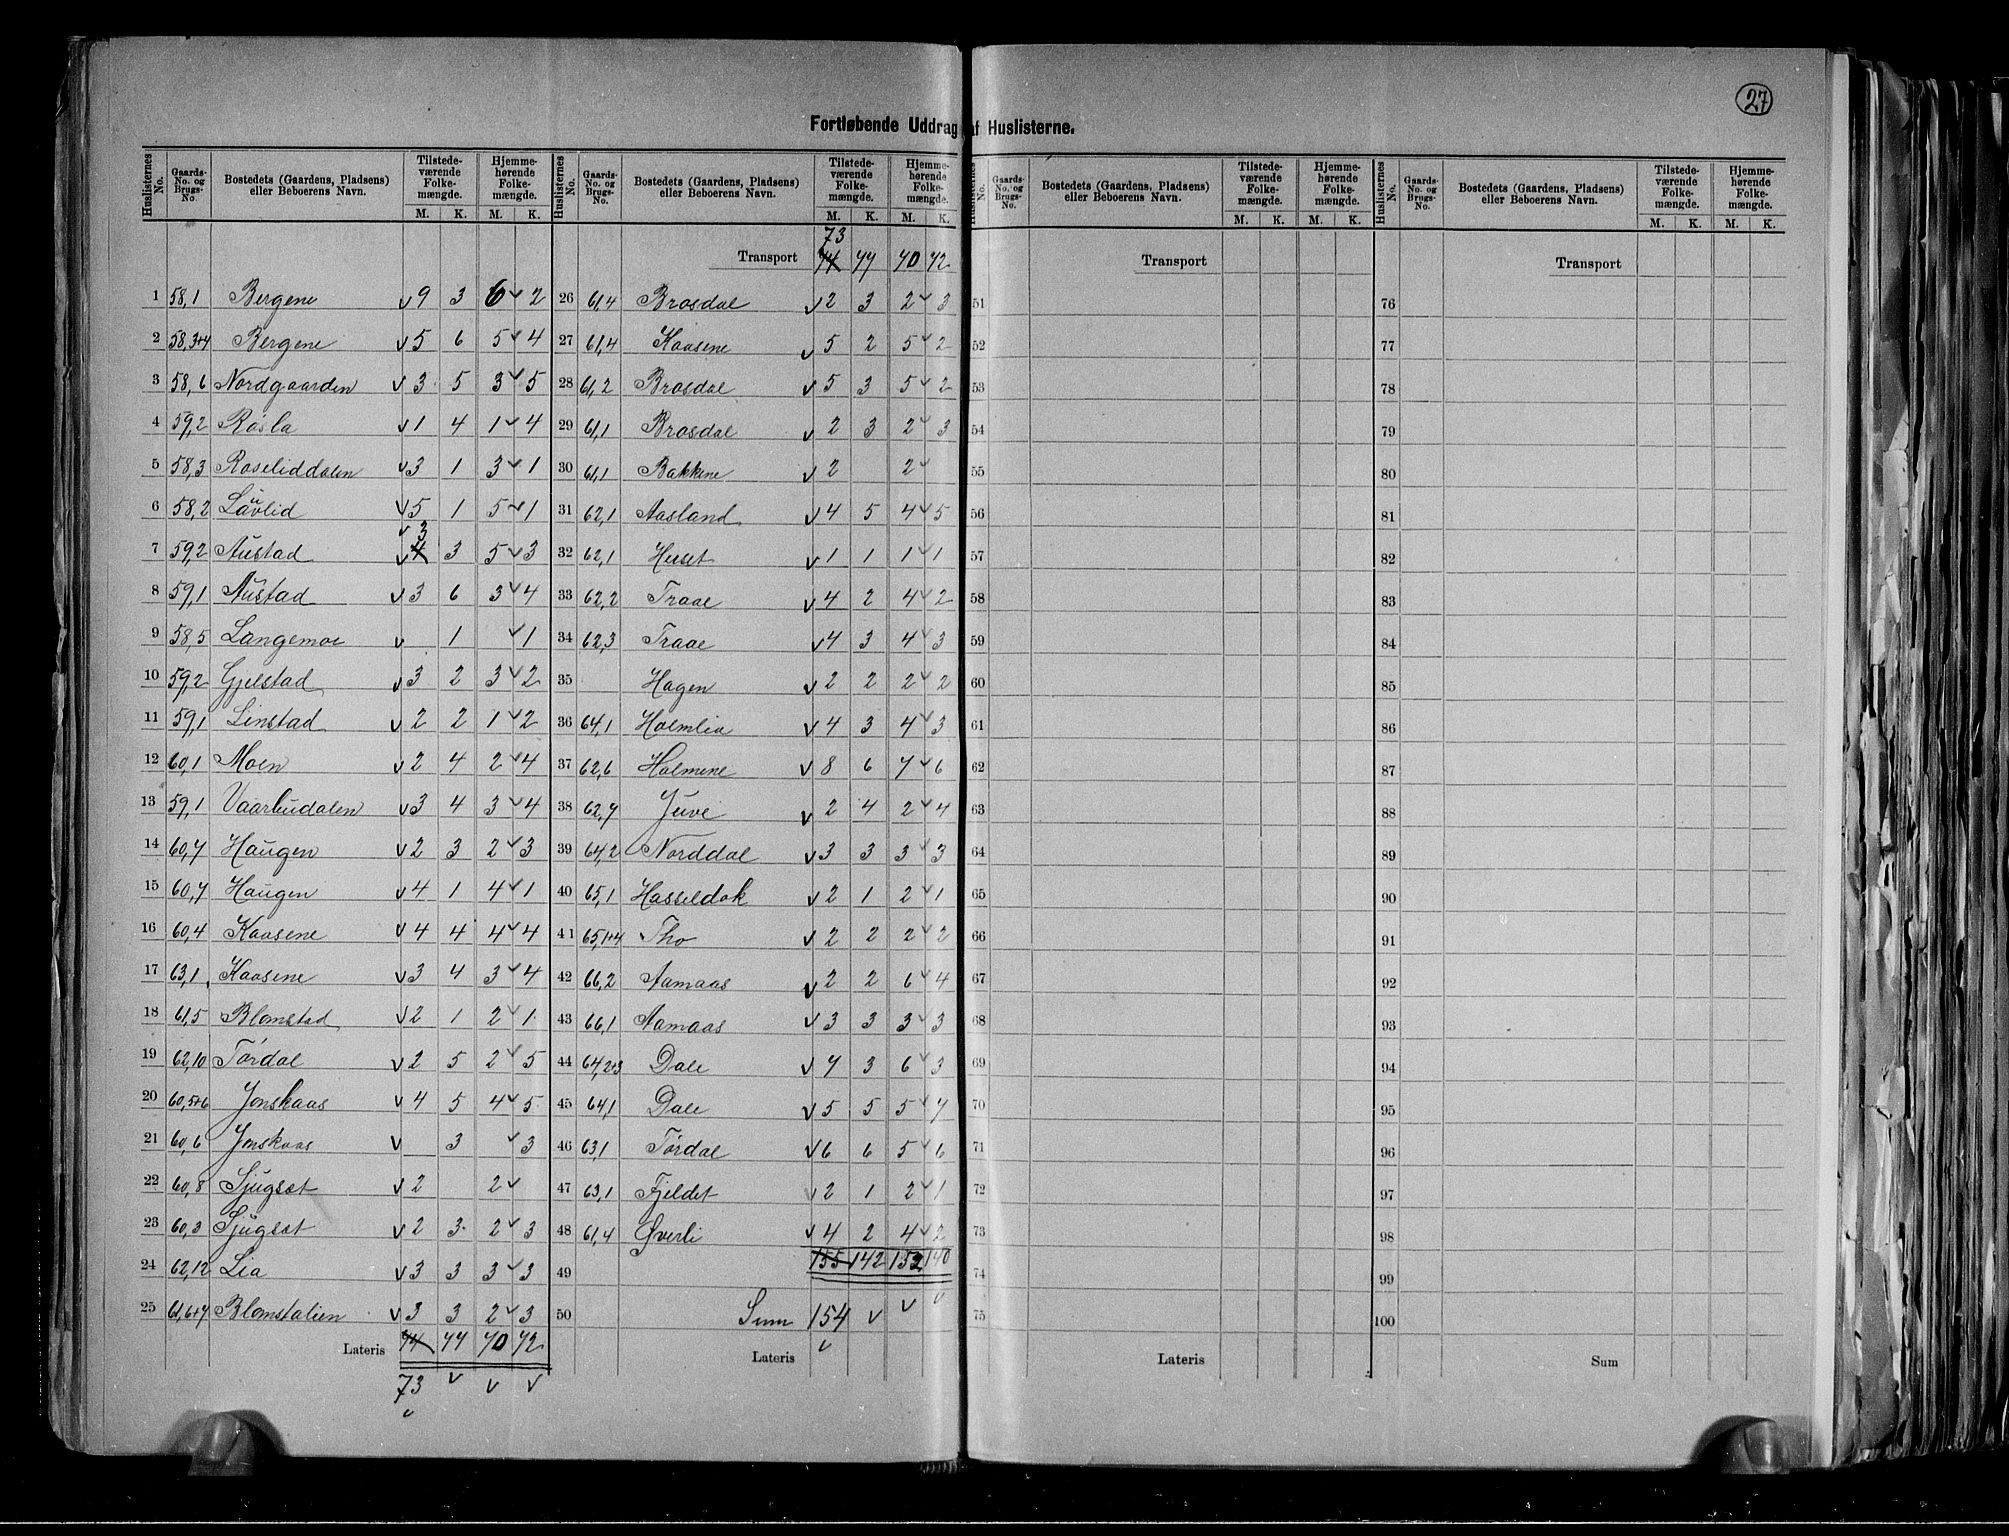 27
Fortløbende Uddrag af Huslisterne.
Huslisternes No. Gaards-No. og Brugs-No. Bostedets (Gaardens, Pladsens) eller Beboerens Navn. Tilstedeværende Folkemængde. M. K. Hjemmehørende Folkemængde. M. K.
1 58,1 Bergene 9 3 6 2
2 58,3+4 Bergene 5 6 5 4
3 58,6 Nordgaarden 3 5 3 5
4 59,2 Røsla 1 4 1 4
5 58,3 Roseliddalen 3 1 3 1
6 58,2 Lävlid 5 1 5 1
7 59,2 Austad 4 3 3 5 3
8 59,1 Austad 3 6 3 4
9 58,5 Langemoe 1 1
10 59,2 Gjelstad 3 2 3 2
11 59,1 Linstad 2 2 1 2
12 60,1 Moen 2 4 2 4
13 59,1 Vaarbudalen 3 4 3 4
14 60,7 Haugen 2 3 2 3
15 60,7 Haugen 4 1 4 1
16 60,4 Kaasene 4 4 4 4
17 63,1 Kaasene 3 4 3 4
18 61,5 Blomstad 2 1 2 1
19 62,10 Tørdal 2 5 2 5
20 60,5+6 Jonskaas 4 5 4 5
21 60,6 Jonskaas 3 3
22 60,8 Sjugsæt 2 2
23 60,3 Sjugsæt 2 3 2 3
24 62,12 Lia 3 3 3 3
25 61,6+7 Blomstalien 3 3 2 3
Lateris 74 77 70 72
73
Huslisternes No. Gaards-No. og Brugs-No. Bostedets (Gaardens, Pladsens) eller Beboerens Navn. Tilstedeværende Folkemængde. M. K. Hjemmehørende Folkemængde. M. K.
73
Transport 74 77 70 72
26 61,4 Brosdal 2 3 2 3
27 61,4 Kaasene 5 2 5 2
28 61,2 Brosdal 5 3 5 2
29 61,1 Brosdal 2 3 2 3
30 61,1 Bakkene 2 2
31 62,1 Aasland 4 5 4 5
32 62,1 Huset 1 1 1 1
33 62,2 Traae 4 2 4 2
34 62,3 Traae 4 3 4 3
35 Hagen 2 2 2 2
36 64,1 Holmlia 4 3 4 3
37 62,6 Holmene 8 6 7 6
38 62,7 Juve 2 4 2 4
39 64,2 Norddal 3 3 3 3
40 65,1 Hasseldok 2 1 2 1
41 65,1+4 Tho 2 2 2 2
42 66,2 Aamaas 2 2 6 4
43 66,1 Aamaas 3 3 3 3
44 64,2+3 Dale 7 3 6 3
45 64,1 Dale 5 5 5 7
46 63,1 Tørdal 6 6 5 6
47 63,1 Fjeldet 2 1 2 1
48 61,4 Øverli 4 2 4 2
49 155 142 152 140
50 Sum 154
Lateris
Huslisternes No. Gaards-No. og Brugs-No. Bostedets (Gaardens, Pladsens) eller Beboerens Navn. Tilstedeværende Folkemængde. M. K. Hjemmehørende Folkemængde. M. K.
Transport
51
52
53
54
55
56
57
58
59
60
61
62
63
64
65
66
67
68
69
70
71
72
73
74
75
Lateris
Huslisternes No. Gaards-No. og Brugs-No. Bostedets (Gaardens, Pladsens) eller Beboerens Navn. Tilstedeværende Folkemængde. M. K. Hjemmehørende Folkemængde. M. K.
Transport
76
77
78
79
80
81
82
83
84
85
86
87
88
89
90
91
92
93
94
95
96
97
98
99
100
Sum